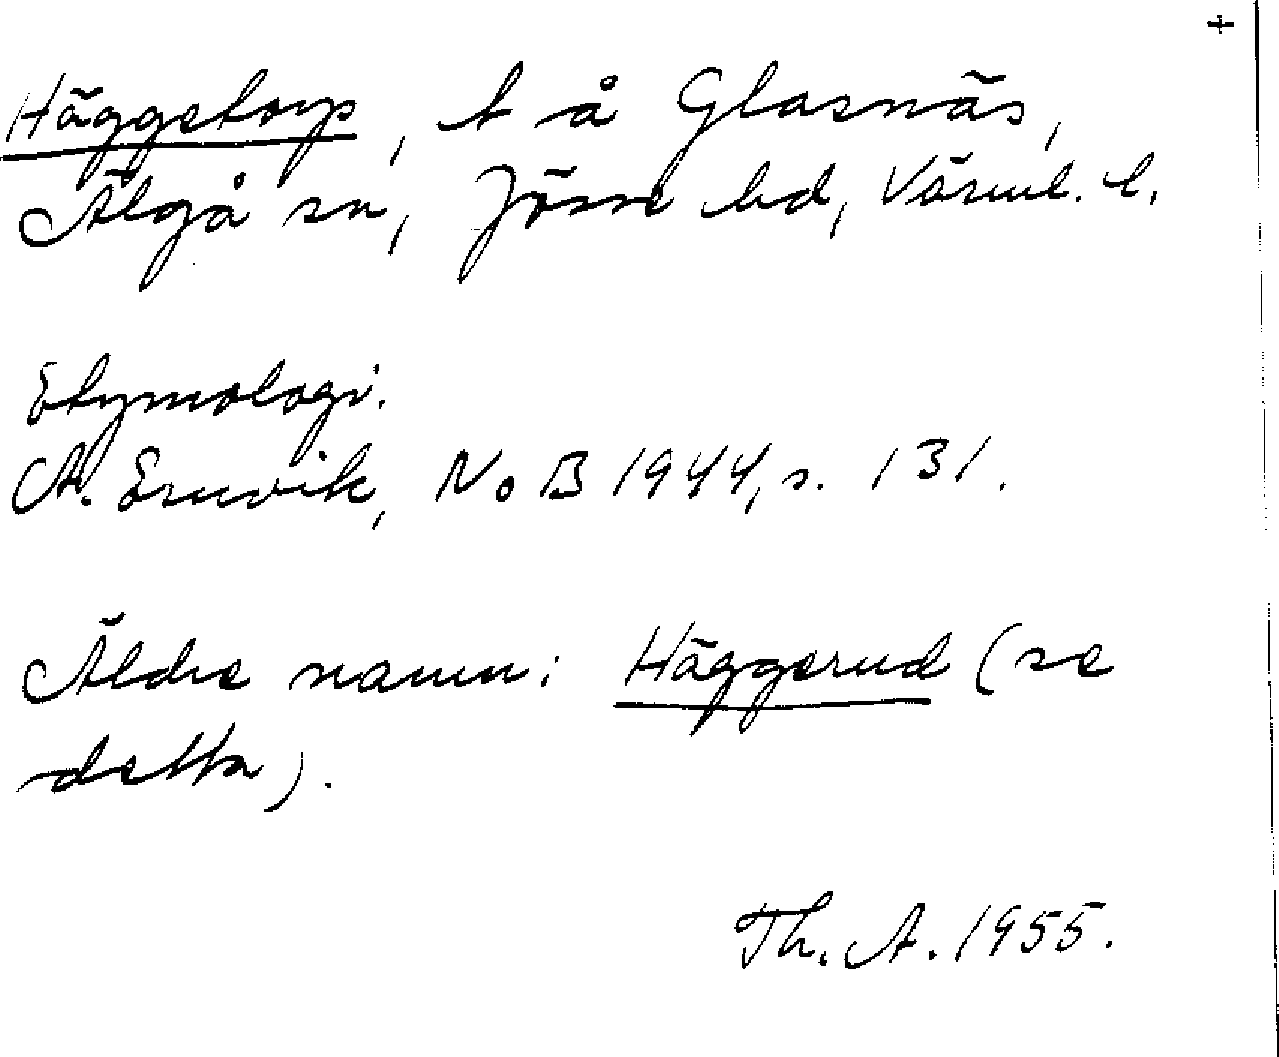 +
Häggetorp, t å Glasnäs,
Älgå sn, Jösse hd, Värml. l.
Etymologi.
A. Ernvik, NoB 1944, s. 131.
Äldre namn: Häggerud (se
detta).
Th. A. 1955.